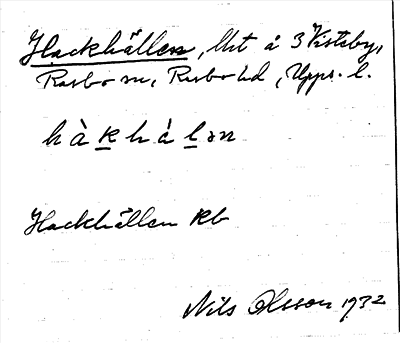 Hackhällen, Urt å 3 Visteby,
Rasbo sn, Rasbo hd, Upps. l.
hàkhálən
Hackhällen Rb
Nils Olsson 1932